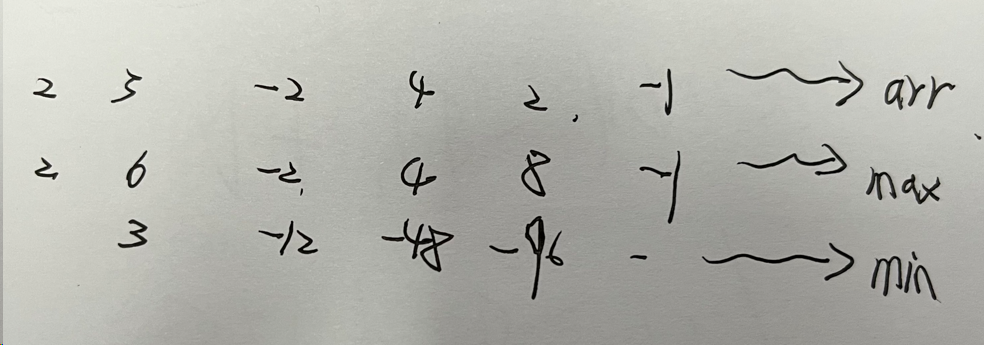 2 3 -2 4 2 -1 → arr
2 6 -2 4 8 -1 → max
3 -12 -48 -96 - → min